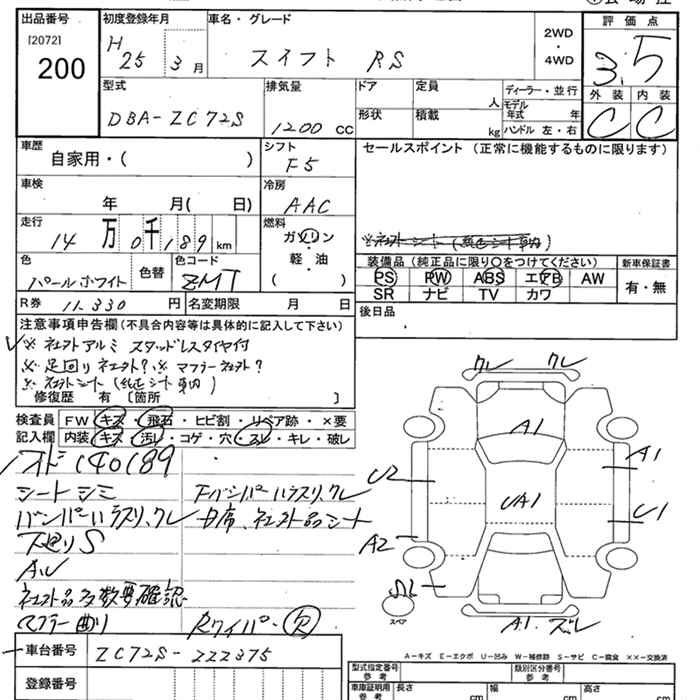 出品番号
[2072]
200
初度登録年月
H 25 3 月
車名・グレード
スイフト RS
2WD
・
4WD
評価点
3.5
外装 内装
C C
型式
DBA-ZC72S
排気量
1200 CC
ドア
形状
定員
人
積載
kg
ディーラー・並行
モデル
年式 年
ハンドル 左・右
車歴
自家用・( )
シフト
F5
セールスポイント (正常に機能するものに限ります)
※社外シート(純正シート車内)
車検
年 月( 日)
冷房
AAC
走行
14 万 0 千 189 km
燃料
ガソリン
・
軽・油
( )
色
パールホワイト
色替
色コード
ZMT
装備品 (純正品に限り○をつけてください)
PS PW ABS エアB AW
SR ナビ TV カワ
新車保証書
有・無
R券 11.330 円
名変期限 月 日
後日品
注意事項申告欄 (不具合内容等は具体的に記入して下さい)
※社外アルミ スタッドレスタイヤ付
※足回り社外? ※マフラー社外?
※社外シート(純正シート車内)
修復歴 有 [箇所 ]
検査員
記入欄
FW キズ・飛石・ヒビ割・リペア跡・×要
内装 キズ・汚レ・コゲ・穴・スレ・キレ・破レ
メオド140189
シートシミ
Fバンパーハラスリ、クレ
バンパーハラスリ、クレ
下廻りS
AW
社外品多数要確認
マフラー曲り
Rワイパー欠
クレ クレ
A1
A1
U2
UA1
U1
A2
スペア
A1.ズレ
A-キズ E-エクボ U-凹み W-補修跡 S-サビ C-腐食 ××-交換済
車台番号
ZC72S-222375
登録番号
型式指定番号
類別区分番号
車庫証明用
参考
長さ cm
幅 cm
高さ cm